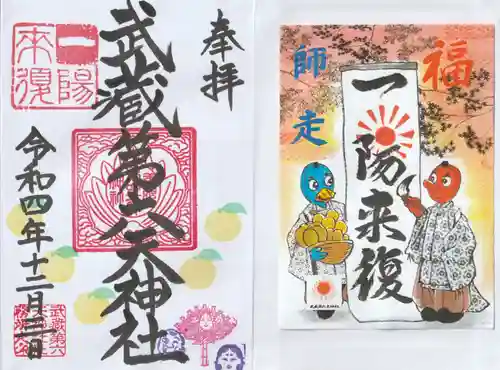 奉拝
武蔵第六天神社
一陽
来復
令和四年十二月三日
武蔵第六
福
師走
一陽来復